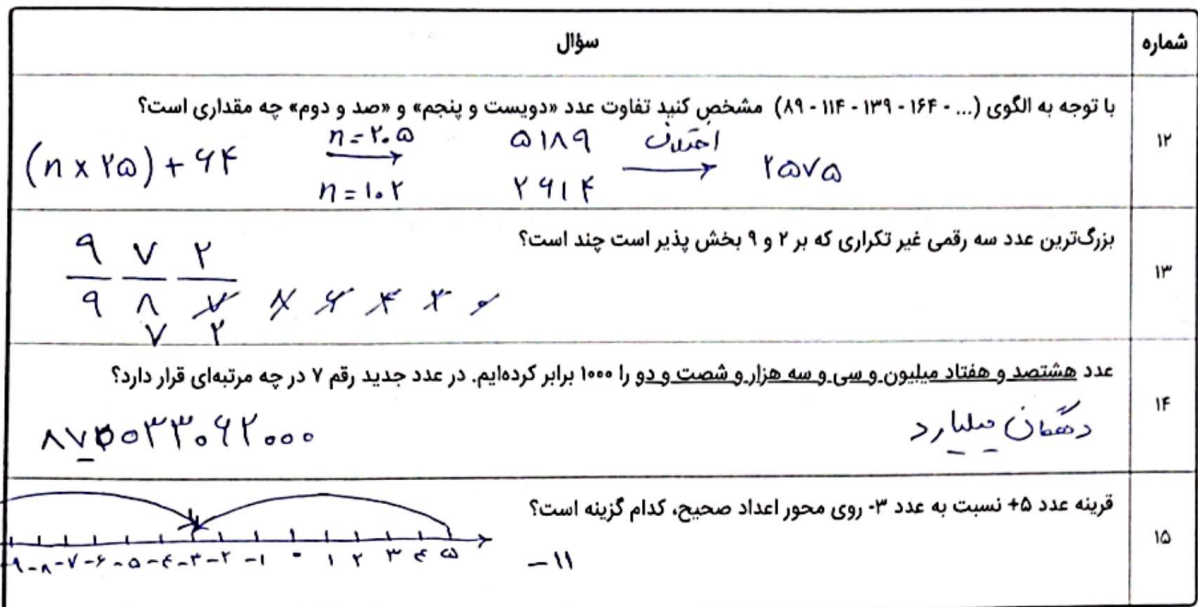 شماره	سؤال
۱۲	با توجه به الگوی (... - ۱۶۴ - ۱۳۹ - ۱۱۴ - ۸۹) مشخص کنید تفاوت عدد «دویست و پنجم» و «صد و دوم» چه مقداری است؟
(n × ۲۵) + ۶۴	n = ۲۰۵	۵۱۸۹	اختلاف	۲۵۷۵
n = ۱۰۲	۲۶۱۴
۱۳	بزرگ‌ترین عدد سه رقمی غیر تکراری که بر ۲ و ۹ بخش پذیر است چند است؟
۹ ۷ ۲
۹ ۸ ۷ ۸ ۶ ۴ ۲ ۰
۷ ۲
۱۴	عدد هشتصد و هفتاد میلیون و سی و سه هزار و شصت و دو را ۱۰۰۰ برابر کرده‌ایم. در عدد جدید رقم ۷ در چه مرتبه‌ای قرار دارد؟
۸۷۰۰۳۳۰۶۲۰۰۰	دهگان میلیارد
۱۵	قرینه عدد ۵+ نسبت به عدد ۳- روی محور اعداد صحیح، کدام گزینه است؟
-۹ -۸ -۷ -۶ -۵ -۴ -۳ -۲ -۱ ۰ ۱ ۲ ۳ ۴ ۵	-۱۱